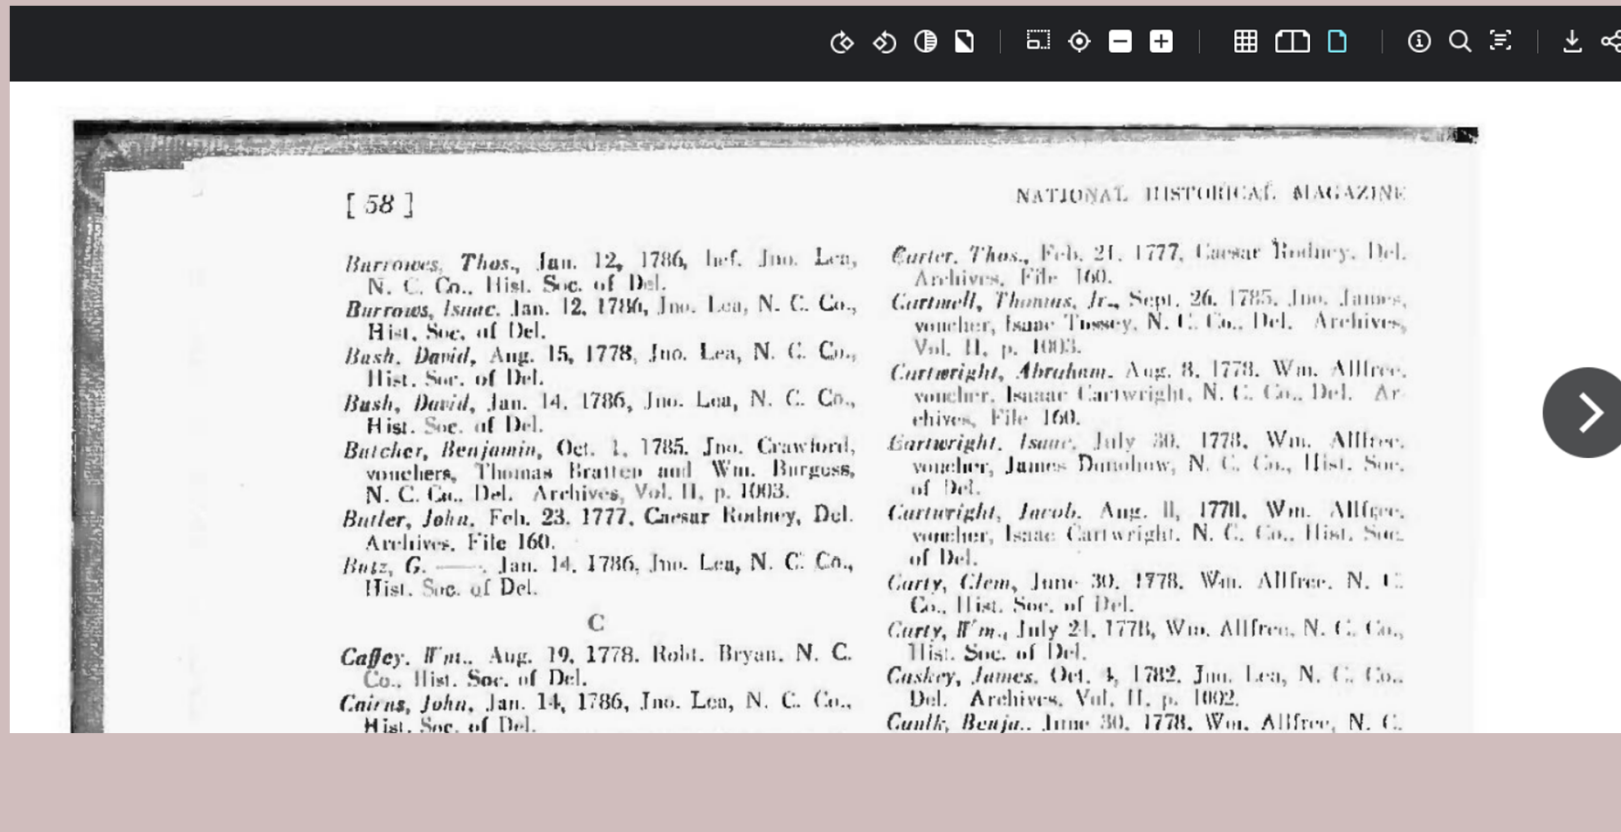 [ 58 ]
NATIONAL HISTORICAL MAGAZINE
Burrowes, Thos., Jan. 12, 1786, bef. Jno. Lea,
N. C. Co., Hist. Soc. of Del.
Burrows, Isaac, Jan. 12, 1786, Jno. Lea, N. C. Co.,
Hist. Soc. of Del.
Bush, David, Aug. 15, 1778, Jno. Lea, N. C. Co.,
Hist. Soc. of Del.
Bush, David, Jan. 14, 1786, Jno. Lea, N. C. Co.,
Hist. Soc. of Del.
Butcher, Benjamin, Oct. 1, 1785, Jno. Crawford,
vouchers, Thomas Bratten and Wm. Burgess,
N. C. Co., Del. Archives, Vol. II, p. 1003.
Butler, John, Feb. 23, 1777, Caesar Rodney, Del.
Archives, File 160.
Butz, G. ——, Jan. 14, 1786, Jno. Lea, N. C. Co.,
Hist. Soc. of Del.
C
Caffey, Wm., Aug. 19, 1778, Robt. Bryan, N. C.
Co., Hist. Soc. of Del.
Cairns, John, Jan. 14, 1786, Jno. Lea, N. C. Co.,
Hist. Soc. of Del.
Carter, Thos., Feb. 21, 1777, Caesar Rodney, Del.
Archives, File 160.
Cartmell, Thomas, Jr., Sept. 26, 1785, Jno. James,
voucher, Isaac Tussey, N. C. Co., Del. Archives,
Vol. II, p. 1003.
Cartwright, Abraham, Aug. 8, 1778, Wm. Allfree,
voucher, Isaaac Cartwright, N. C. Co., Del. Ar-
chives, File 160.
Cartwright, Isaac, July 30, 1778, Wm. Allfree,
voucher, James Donohow, N. C. Co., Hist. Soc.
of Del.
Cartwright, Jacob, Aug. 1778, Wm. Allfree,
voucher, Isaac Cartwright, N. C. Co., Hist. Soc.
of Del.
Carty, Clem, June 30, 1778, Wm. Allfree, N. C.
Co., Hist. Soc. of Del.
Carty, Wm., July 24, 1778, Wm. Allfree, N. C. Co.,
Hist. Soc. of Del.
Caskey, James, Oct. 4, 1782, Jno. Lea, N. C. Co.,
Del. Archives, Vol. II, p. 1002.
Caulk, Benja., June 30, 1778, Wm. Allfree, N. C.